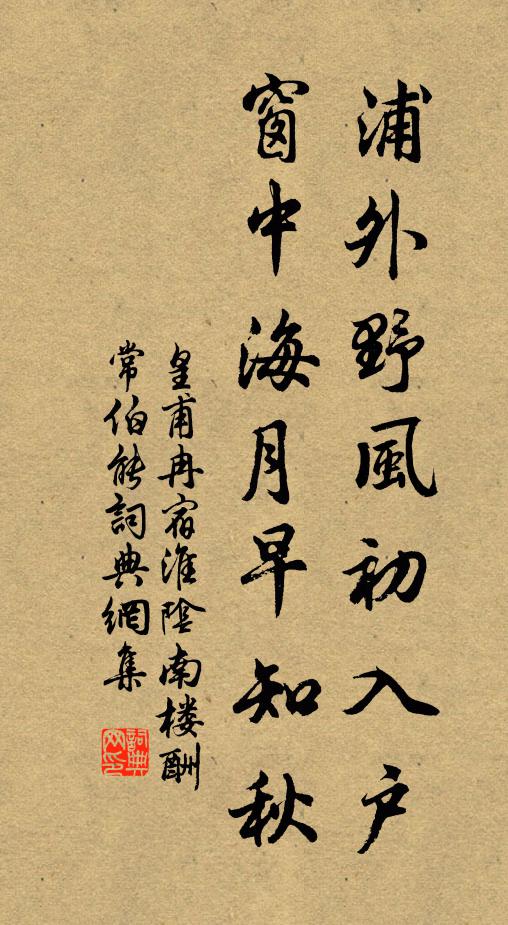 浦外野風初入户
窗中海月早知秋
皇甫冉宿淮陰南楼酬
常伯能詞典網集
詞典
网印